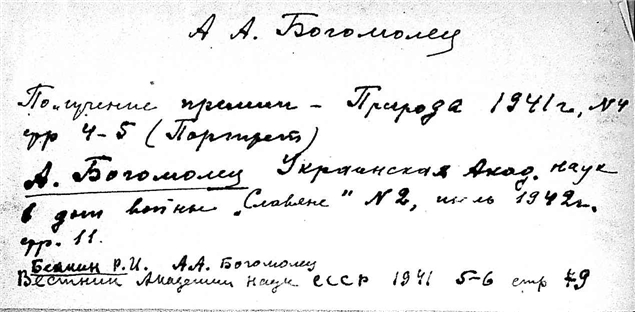 А А. Богомолец
Получение премии – Природа 1941 г., N4
стр 4-5 (Портрет)
А. Богомолец Украинская Акад. наук
в дни войны „Славяне" N2, июль 1942 г.
стр. 11.
Р.И. А А. Богомолец
Вестник Академии наук СССР 1941 5-6 стр 79